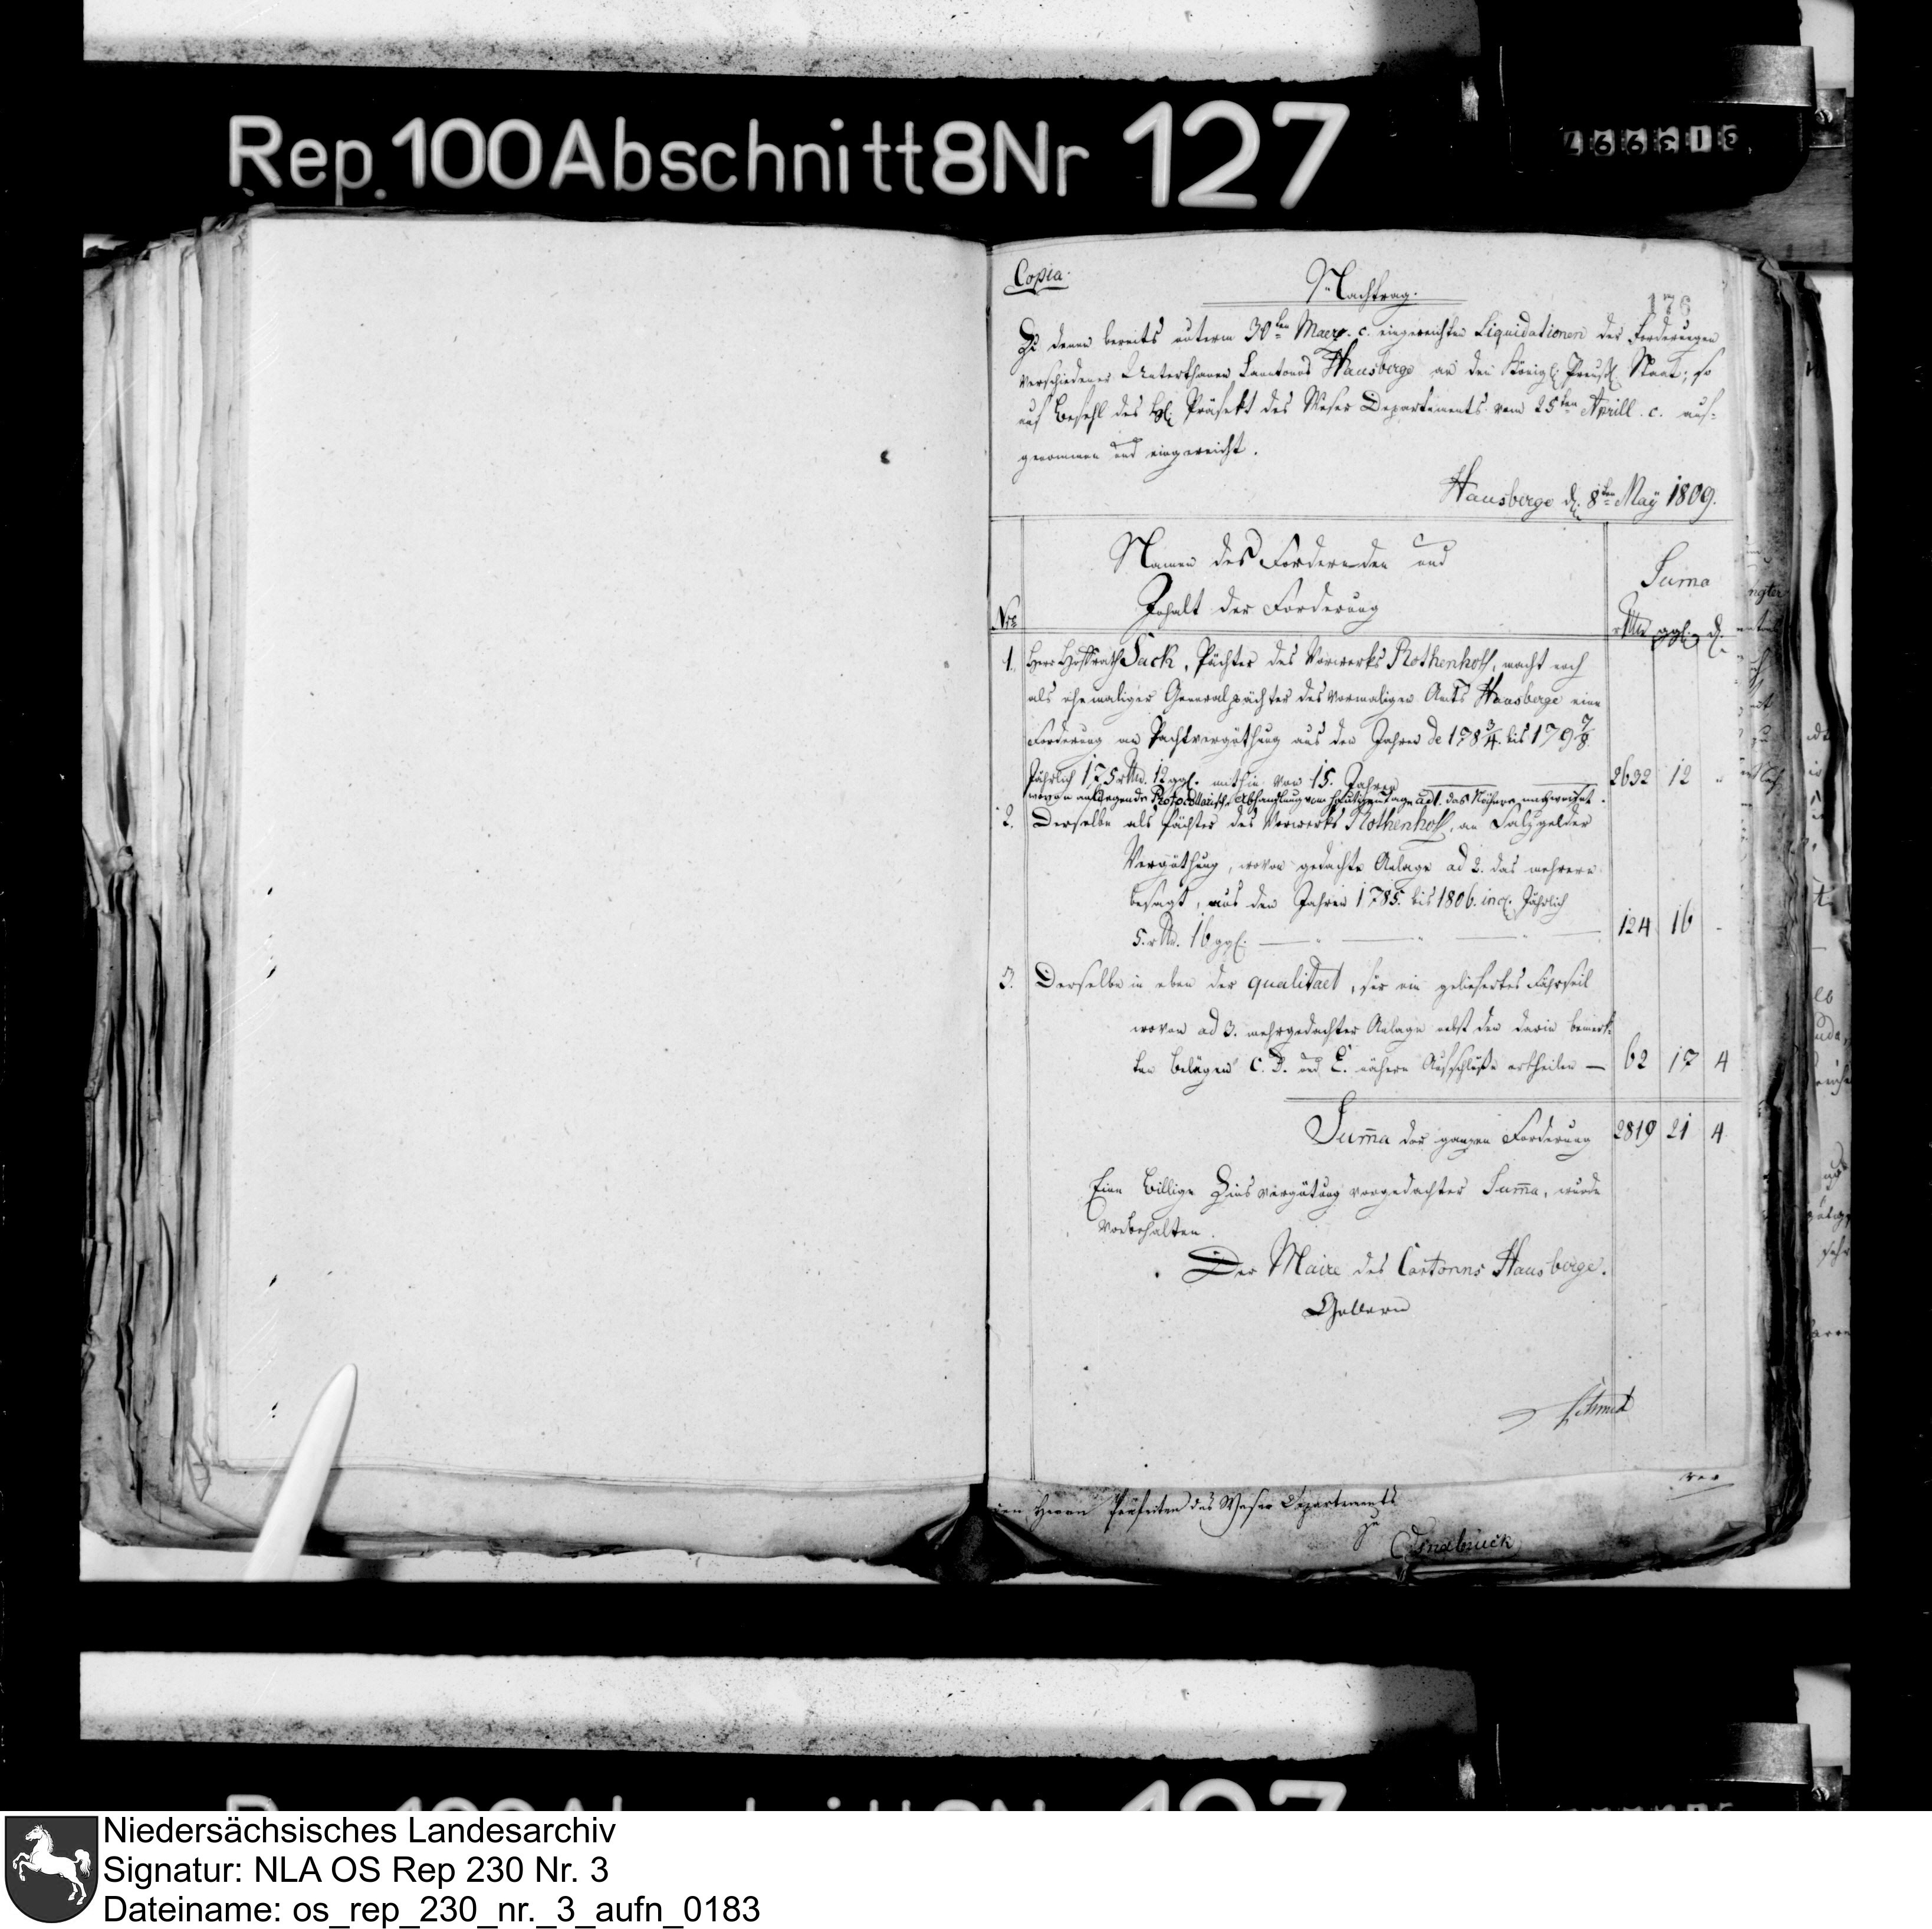 Rep. 100 Abschnitt 8 Nr 127
Copia.
Nachtrag.
176
Zu denen bereits unterm 30ten Maerz. c. eingereichten Liquidationen der Forderungen
verschiedener Unterthanen Cantons Hausberge an den Königl: Preuß: Staat; so
auf Befehl des H: Präfekt des Weser Departements vom 25ten Aprill. c. auf-
genommen und eingereicht.
Hausberge d: 8ten May 1809.
Namen des Fordernden und
Inhalt der Forderung
Suma
Nro
rthlr ggl. d.
1. Herr Hoffrath Sack, Pächter des Vorwerks Rothenhoff, macht noch
als ehemaliger Generalpächter des vormaligen Amts Hausberge eine
Forderung an Pachtvergüthung aus den Jahren de 178¾. bis 179⅞.
Jährlich 175 rthl. 12 ggl. mithin von 15. Jahren 2632 12 "
wovon anliegende Protocollarische Abhandlung vom heutigen tage ad 1. das Nähere nachweiset.
2. Derselbe als Pächter des Vorwerks Rothenhoff, an Salzgelder
Vergüthung, wovon gedachte Anlage ad 2. das mehrere
besagt, aus den Jahren 1785. bis 1806. incl. Jährlich
5. rthl. 16 ggl. 124 16 -
3. Derselbe in eben der qualitaet, für ein geliefertes Fährseil
wovon ad 3. mehrgedachter Anlage nebst den darin bemerk-
ten Belägen C. D. und E. nähern Aufschluße ertheilen — 62 17 4
Suma der ganzen Forderung 2819 21 4
Eine billige Zinsvergütung vorgedachter Suma, wurde
vorbehalten.
Der Maire des Cantonns Hausberge.
Schmid
den Herrn Präfecten des Weser Departements
zu
Osnabrück
Niedersächsisches Landesarchiv
Signatur: NLA OS Rep 230 Nr. 3
Dateiname: os_rep_230_nr._3_aufn_0183